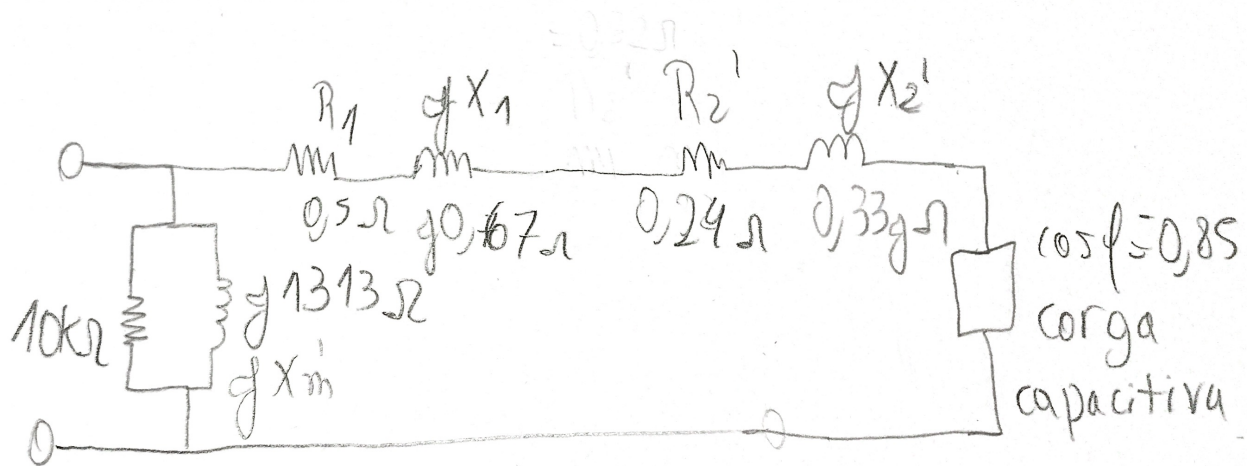 R1
jX1
R2'
jX2'
0,5Ω
j0,67Ω
0,24Ω
0,33jΩ
10kΩ
j1313Ω
jXm'
cosφ=0,85
corga
capacitiva